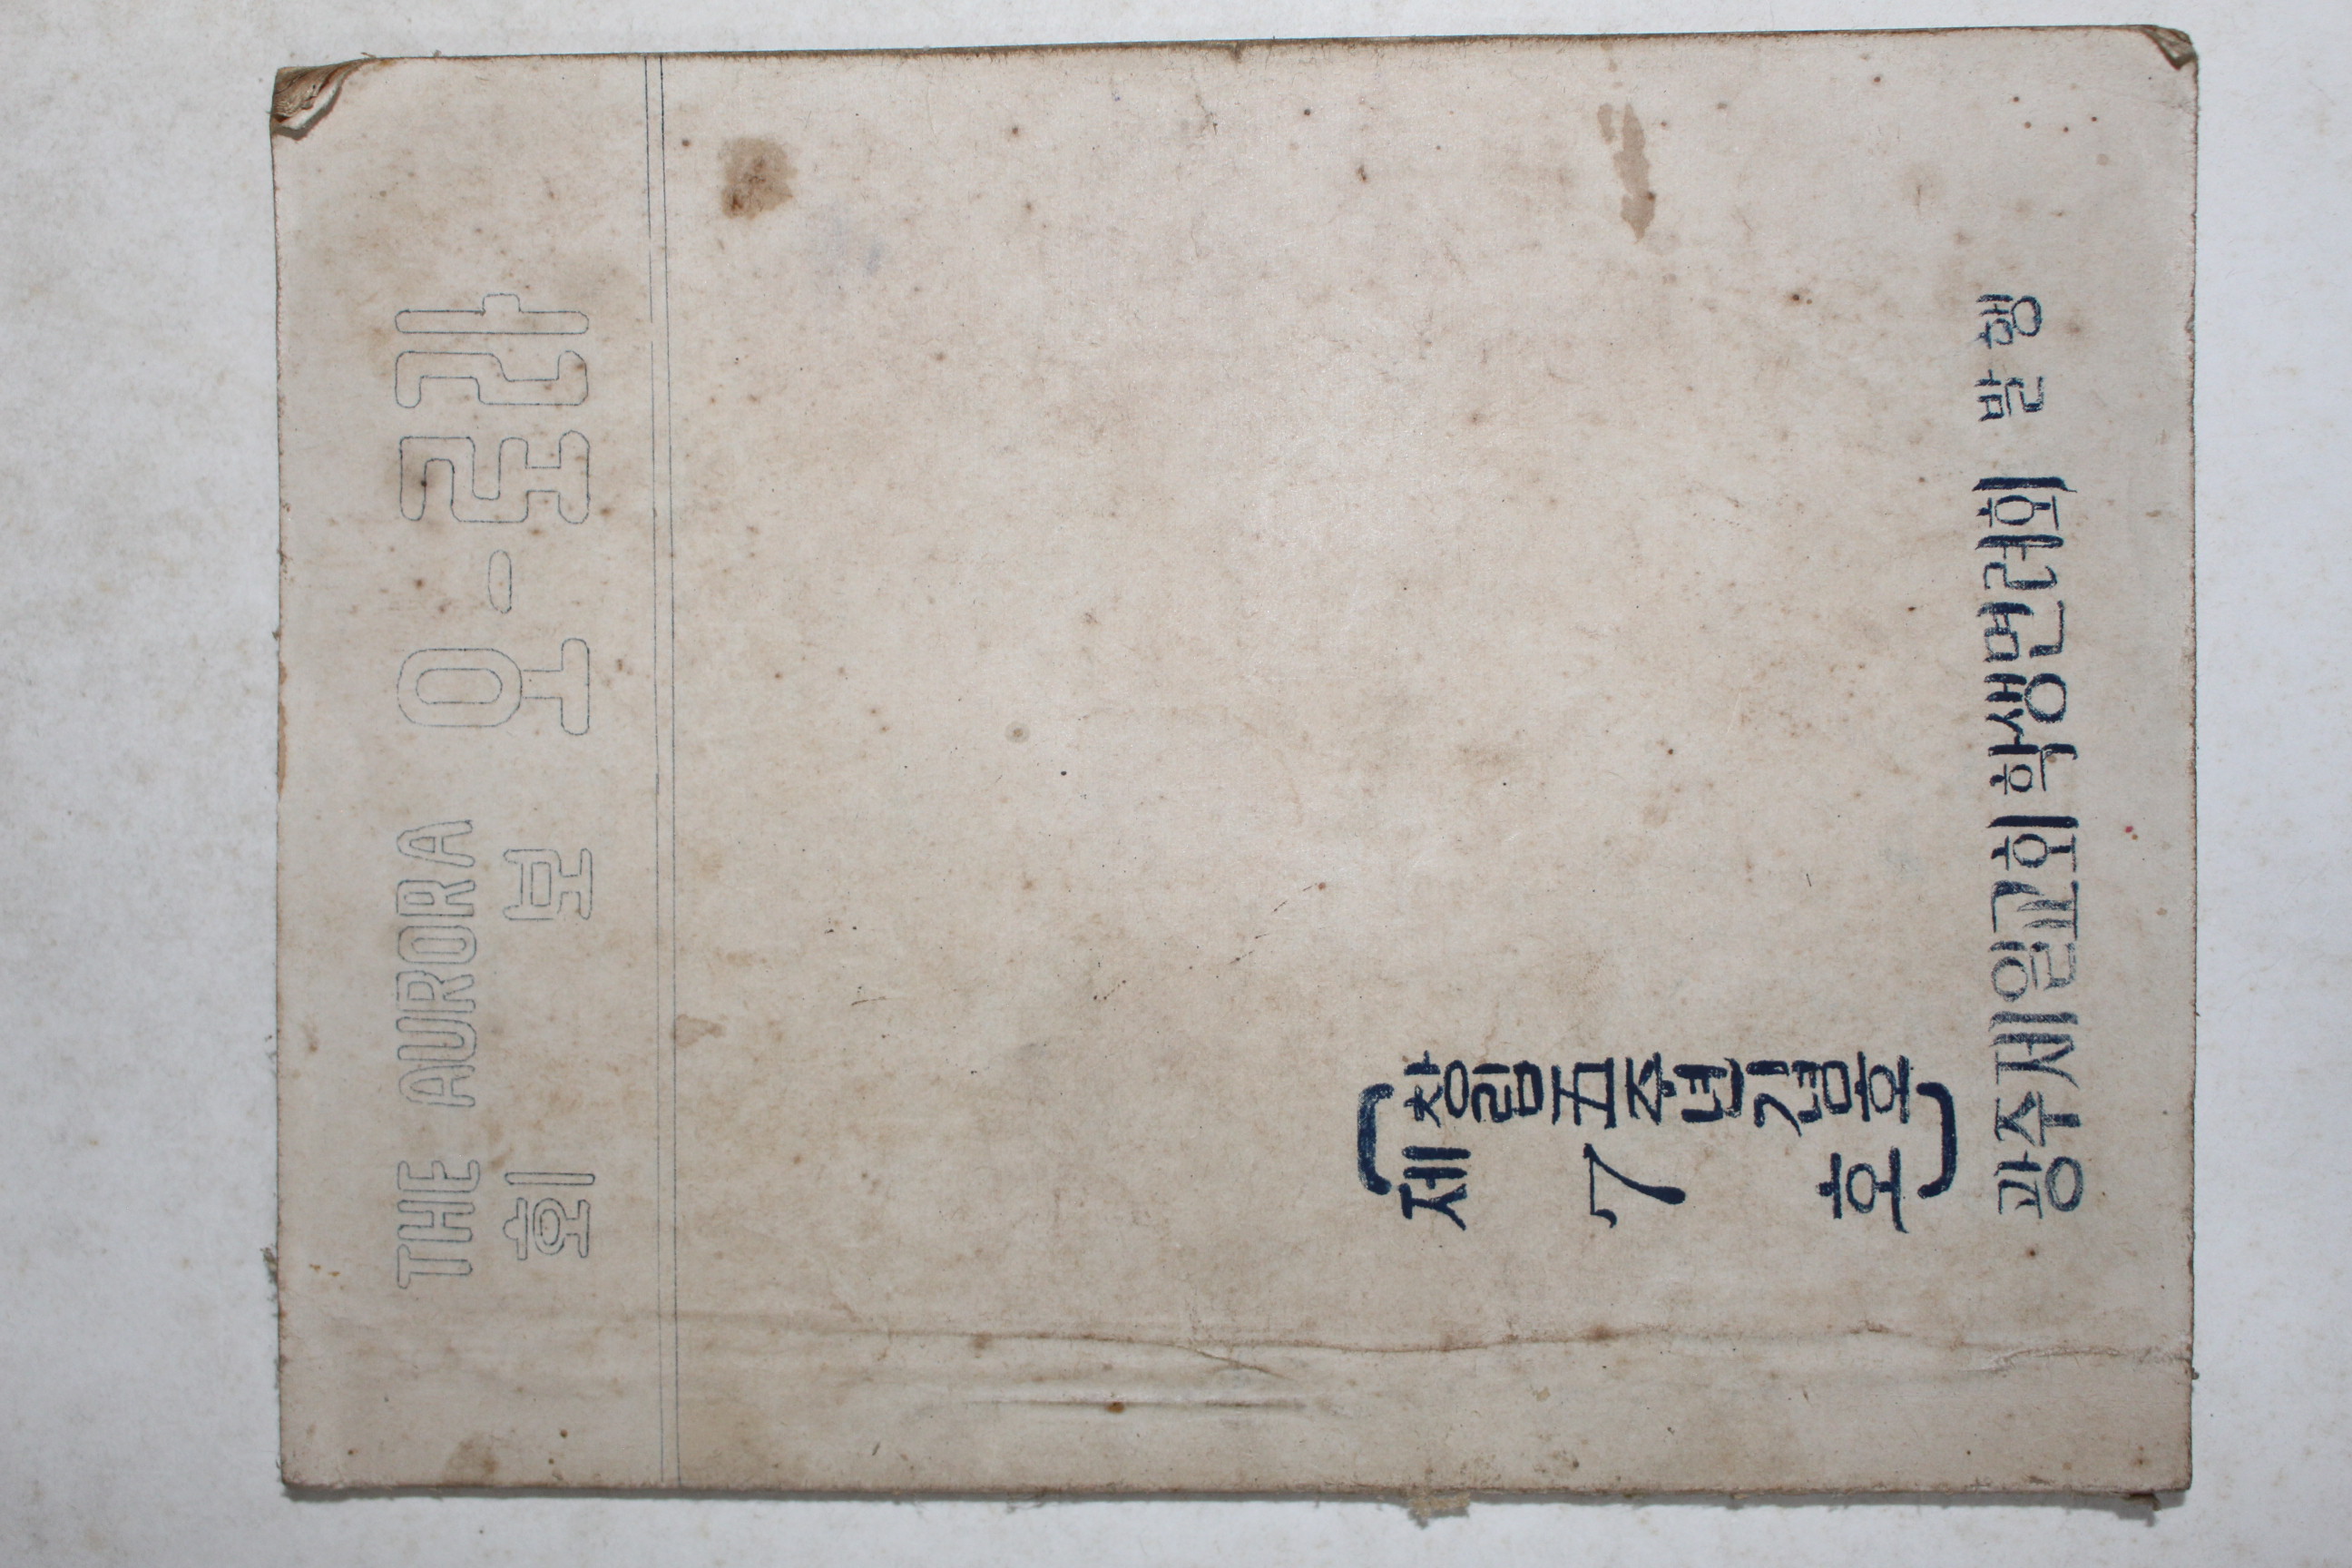 THE AURORA
회 보 오-로라
제 7 호
창립五주년기념호
광주제일교회 학생면려회 발행